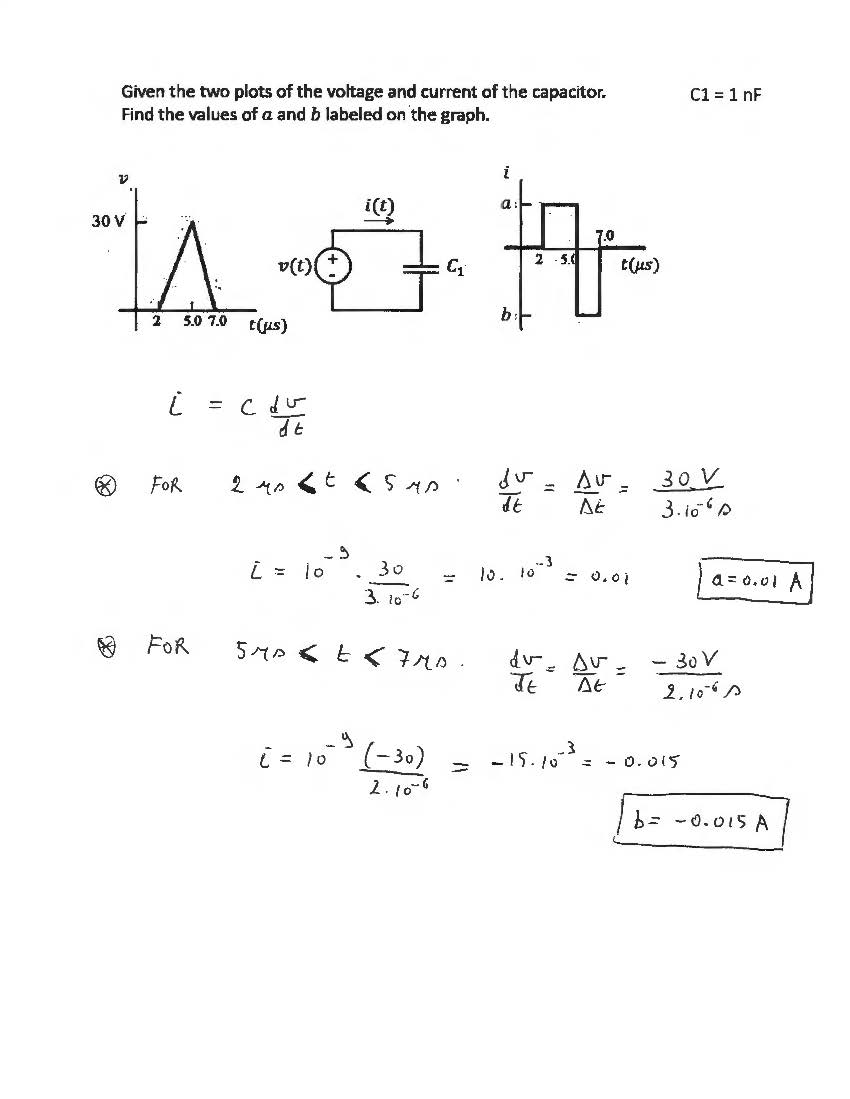 Given the two plots of the voltage and current of the capacitor.
C1 = 1 nF
Find the values of a and b labeled on the graph.
v
30 V
2 5.0 7.0 t(μs)
i(t)
v(t)
+
-
C₁
i
a
7.0
2 5.0 t(μs)
b
i = C dv/dt
⊛ FOR 2 μs < t < 5 μs . dv/dt = Δv/Δt = 30 V / 3.10⁻⁶ s
i = 10⁻⁹ . 30 / 3.10⁻⁶ = 10 . 10⁻³ = 0.01
a = 0.01 A
⊛ FOR 5 μs < t < 7 μs . dv/dt = Δv/Δt = -30 V / 2.10⁻⁶ s
i = 10⁻⁹ (-30) / 2.10⁻⁶ = -15.10⁻³ = -0.015
b = -0.015 A